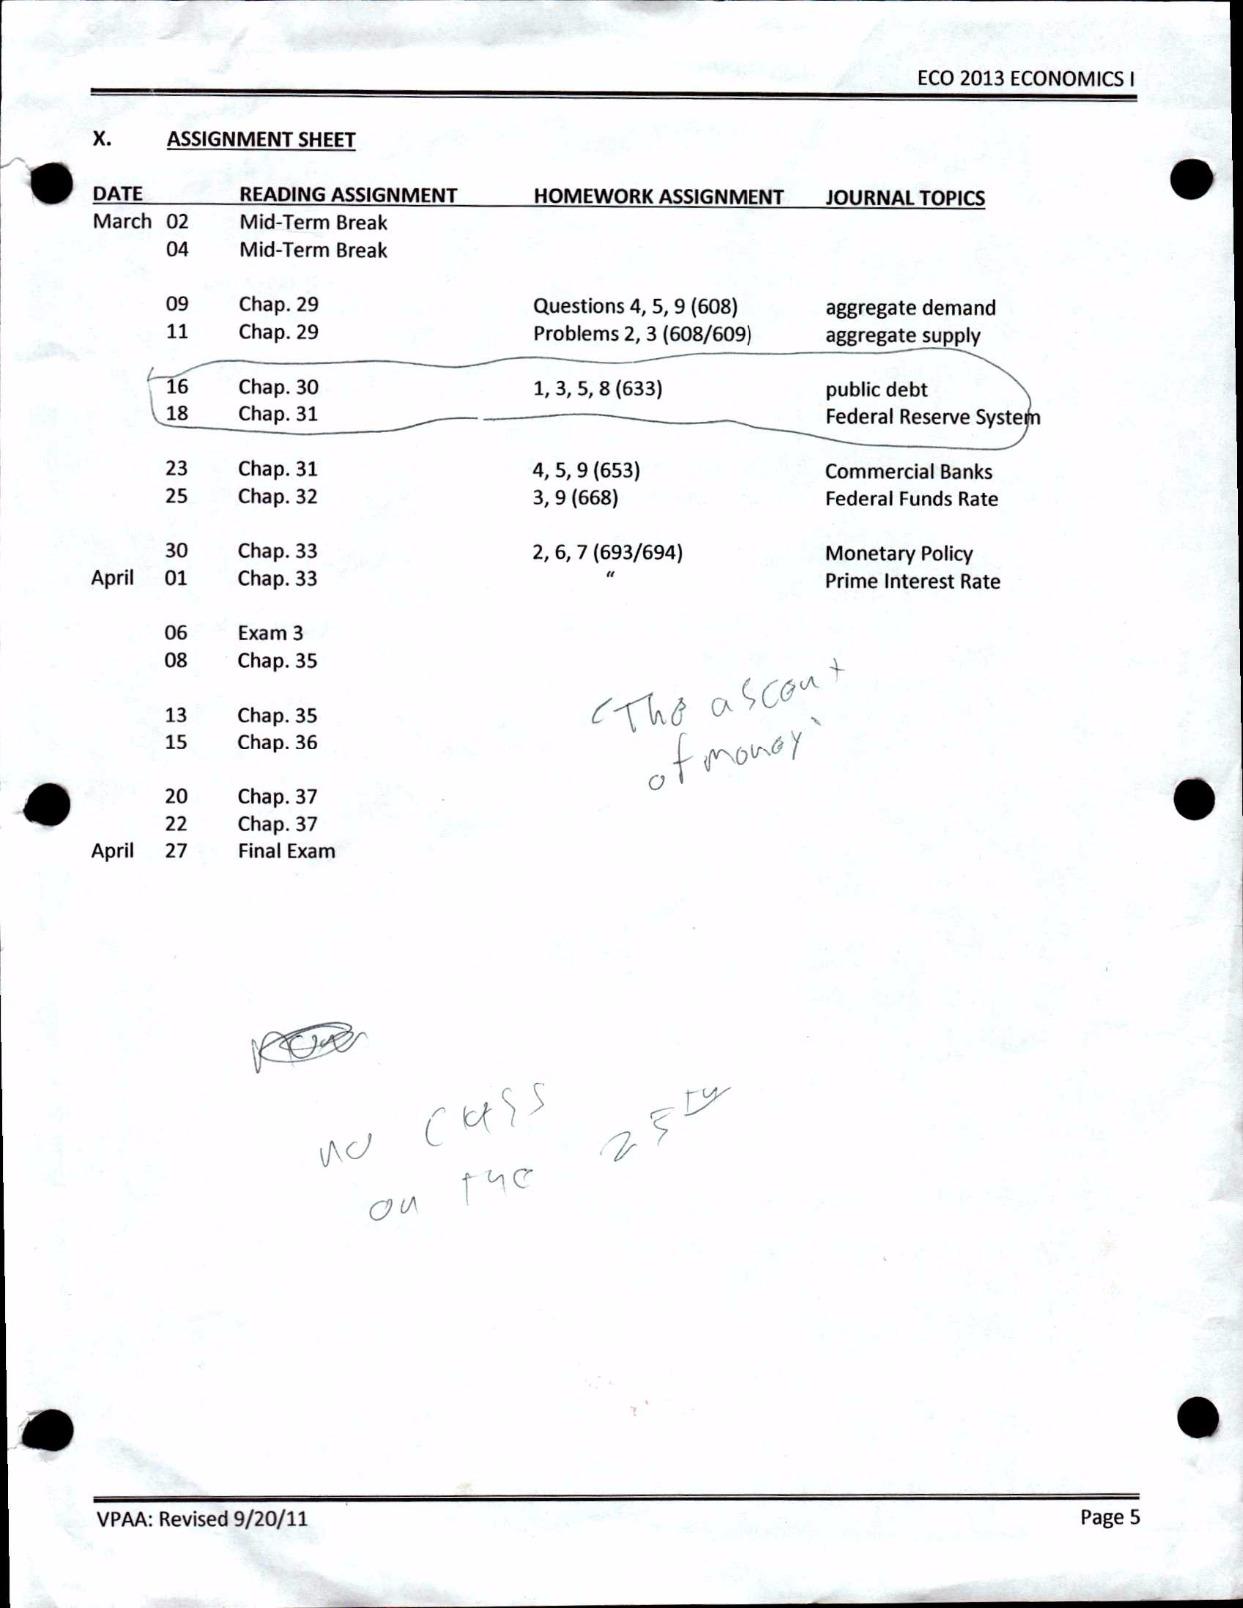 ECO 2013 ECONOMICS I
X. ASSIGNMENT SHEET
DATE READING ASSIGNMENT HOMEWORK ASSIGNMENT JOURNAL TOPICS
March 02 Mid-Term Break
04 Mid-Term Break
09 Chap. 29 Questions 4, 5, 9 (608) aggregate demand
11 Chap. 29 Problems 2, 3 (608/609) aggregate supply
16 Chap. 30 1, 3, 5, 8 (633) public debt
18 Chap. 31 Federal Reserve System
23 Chap. 31 4, 5, 9 (653) Commercial Banks
25 Chap. 32 3, 9 (668) Federal Funds Rate
30 Chap. 33 2, 6, 7 (693/694) Monetary Policy
April 01 Chap. 33 " Prime Interest Rate
06 Exam 3
08 Chap. 35
13 Chap. 35
15 Chap. 36
20 Chap. 37
22 Chap. 37
April 27 Final Exam
The ascent
of money
no class
on the 25th
VPAA: Revised 9/20/11 Page 5